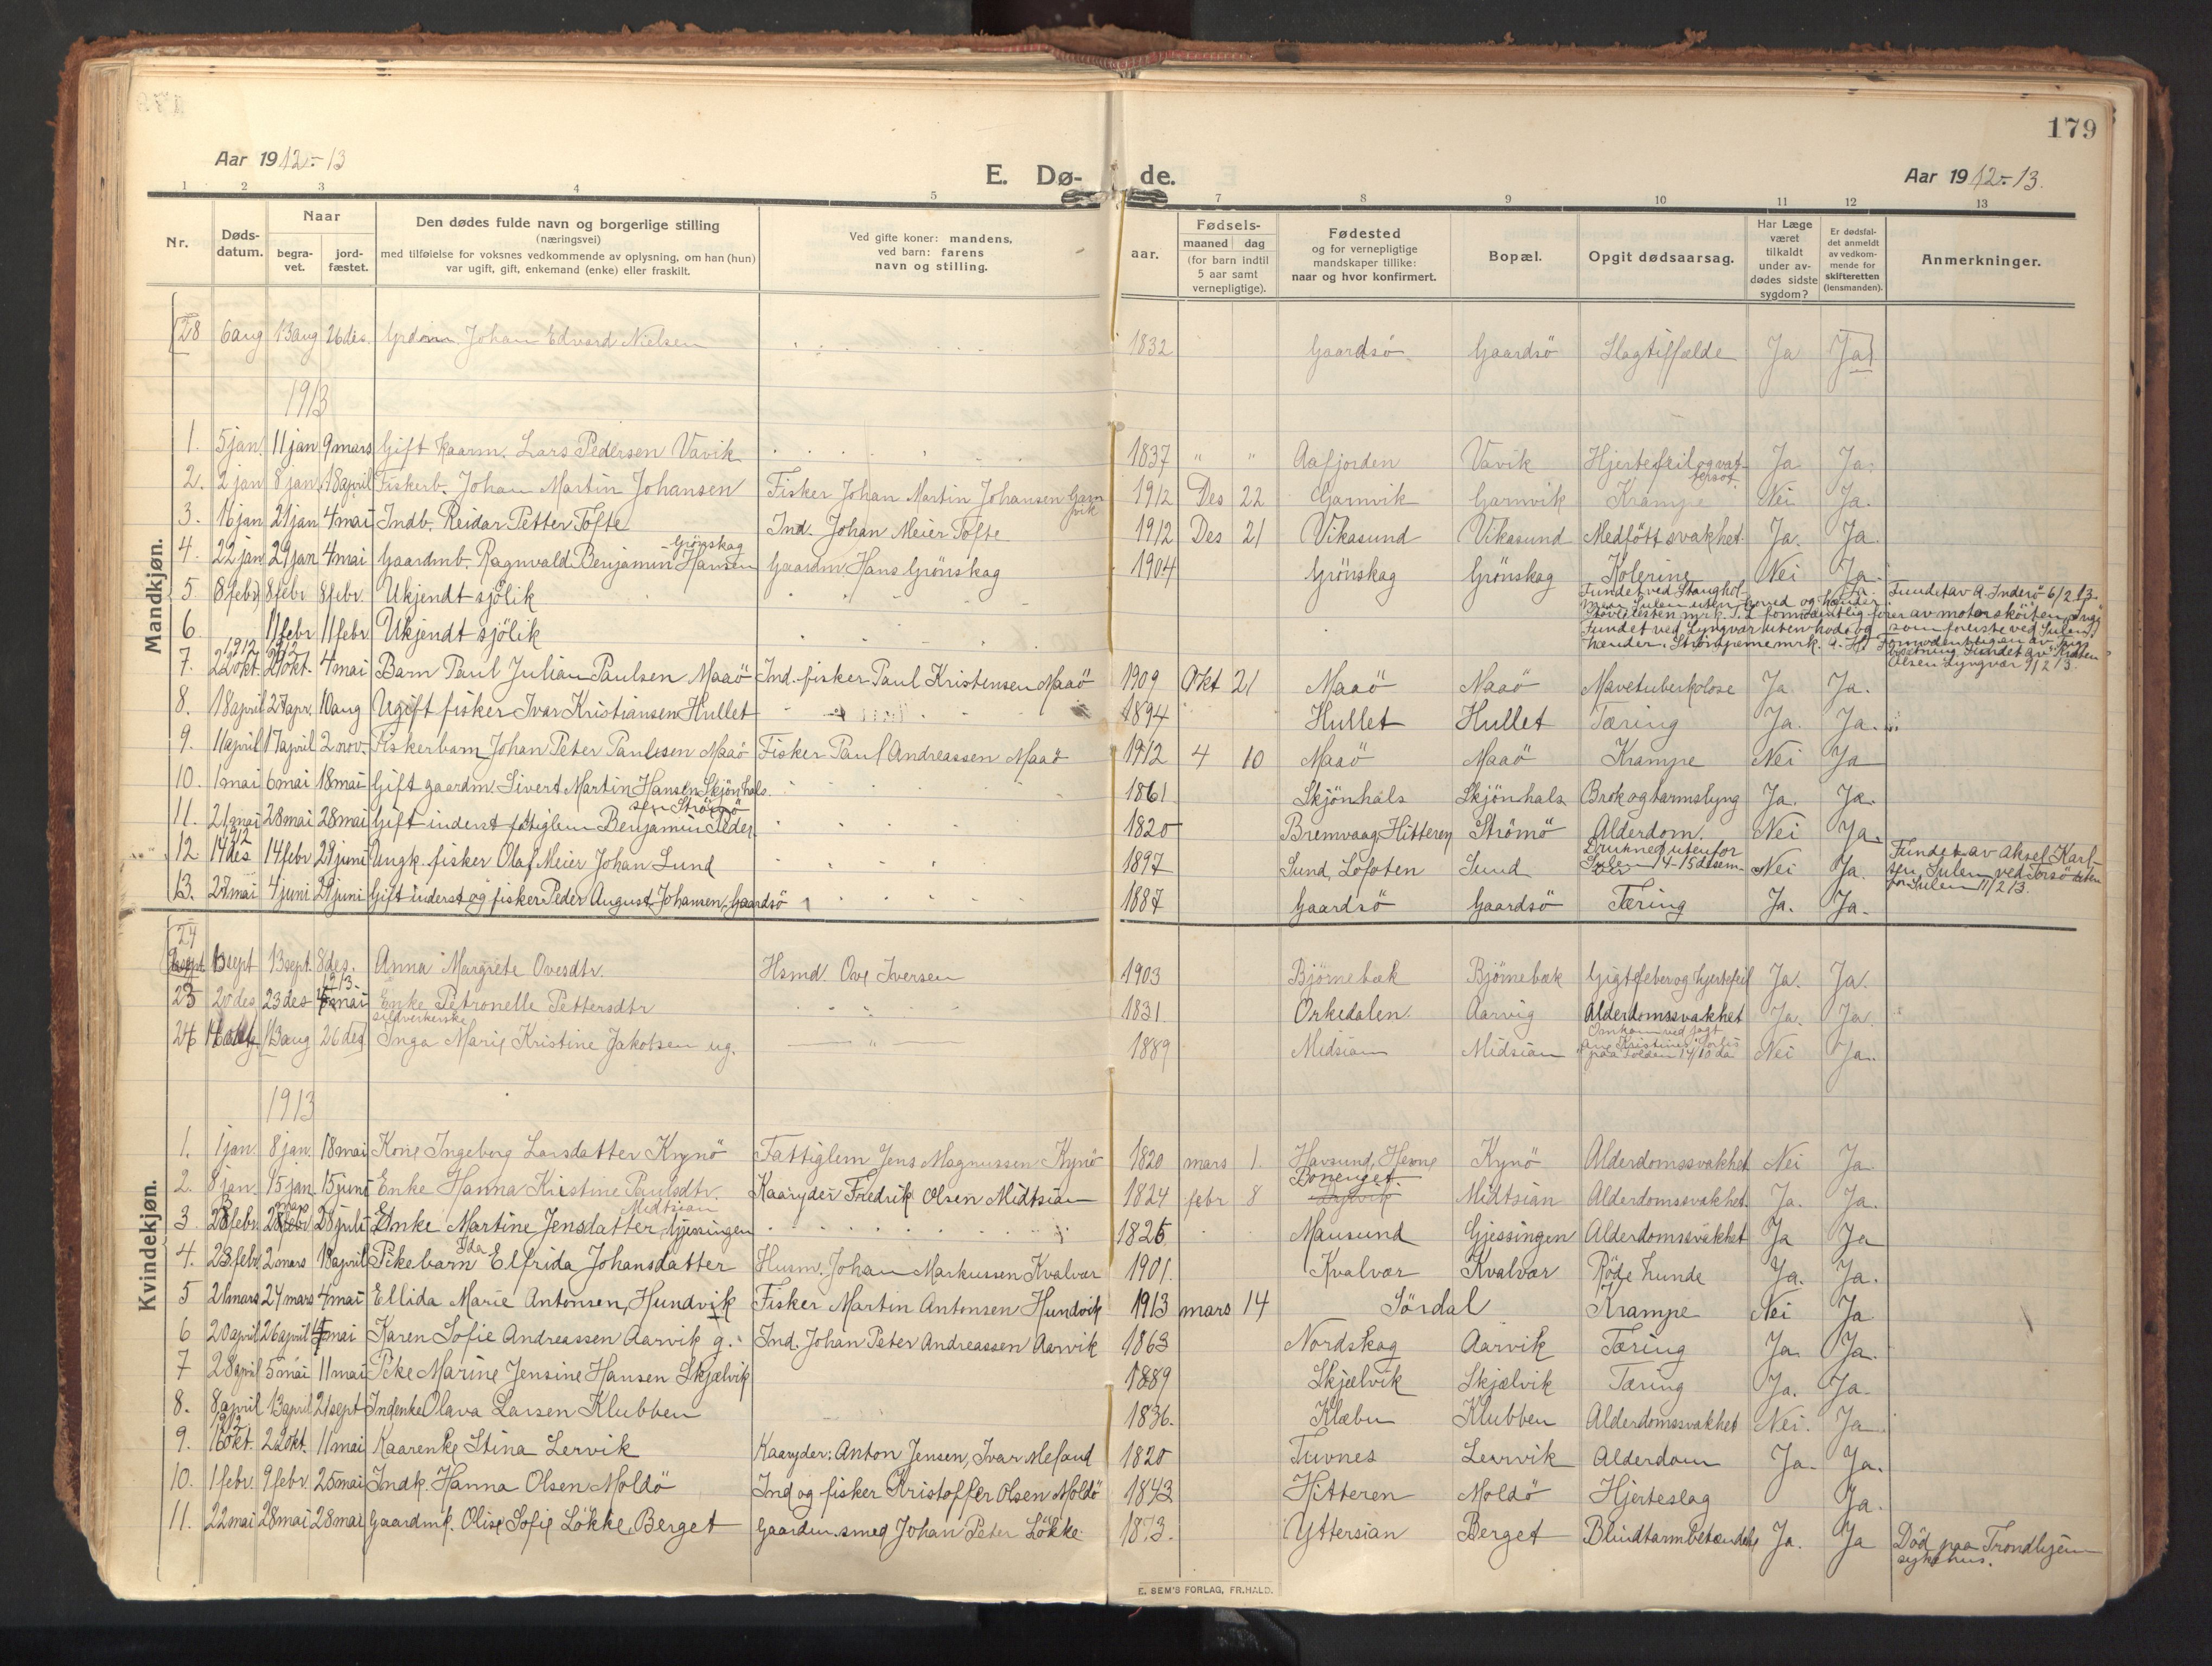 179
Aar 1912.-13
E. Dø-
de.
Aar 1912.-13.
1 2 3 4 5 7 8 9 10 11 12 13
Nr.
Døds-
datum.
Naar
begra-
vet.
jord-
fæstet.
Den dødes fulde navn og borgerlige stilling
(næringsvei)
med tilføielse for voksnes vedkommende av oplysning, om han (hun)
var ugift, gift, enkemand (enke) eller fraskilt.
Ved gifte koner: mandens,
ved barn: farens
navn og stilling.
aar.
Fødsels-
maaned dag
(for barn indtil
5 aar samt
vernepligtige).
Fødested
og for vernepligtige
mandskaper tillike:
naar og hvor konfirmert.
Bopæl.
Opgit dødsaarsag.
Har Læge
været
tilkaldt
under av-
dødes sidste
sygdom?
Er dødsfal-
det anmeldt
av vedkom-
mende for
skifteretten
(lensmanden).
Anmerkninger.
Mandkjøn.
28 6 aug 13 aug 26 des. Grdm. Johan Edvard Nielsen 1832 Gaardsö Gaardsö Slagtilfælde Ja Ja
1913
1. 5 jan. 11 jan 9 mars Gift kaarm. Lars Pedersen Vavik 1837 " " Aafjorden Vavik Hjertefeil og vat-
tersot Ja Ja.
2. 2 jan 8 jan. 18 april Fiskerb. Johan Martin Johansen Fisker Johan Martin Johansen Garn
vik 1912 Des 22 Garnvik Garnvik Krampe Nei Ja.
3. 16 jan 21 jan 4 mai Indb. Reidar Petter Tofte Ind. Johan Meier Tofte 1912 Des 21 Vikasund Vikasund Medfött svakhet. Ja. Ja.
4. 22 jan 29 jan 4 mai Gaardmb. Ragnvald Benjamin Hansen Grönskag Gaardm. Hans Grönskag 1904 Grönskag Grönskag Kolerine Nei Ja.
5 8 febr 8 febr. Ukjendt sjölik Fundet ved
Sulen uten hoved og hænder Ja. Fundet av A. Inderö 6/2 13.
6. 11 febr 11 febr Ukjendt sjölik Fundet ved Lyngvær uten hode og
hænder. Strömperne mrk. A. H. av motorsköiten
som forliste ved Sulen.
Fundet av
Olsen Lyngvær 9/2 13.
7. 1912 22 okt. 1912 29 okt. 4 mai Barn Paul Julian Paulsen Maaö Ind. fisker Paul Kristensen Maaö 1909 Okt 21 Maaö Maaö Mavetuberkolose Ja Ja.
8. 18 april 27 apr. 10 aug Ugift fisker Ivar Kristiansen Hullet 1894 Hullet Hullet Tæring Ja. Ja.
9. 11 april 17 april 2 nov. Fiskerbarn Johan Peter Paulsen Maaö Fisker Paul Andreassen Maaö 1912 4 10 Maaö Maaö Krampe Nei Ja
10. 1 mai 6 mai 18 mai Gift gaardm. Sivert Martin Hansen Skjönhals. 1861 Skjönhals Skjönhals Brok og tarmslyng Ja. Ja.
11. 21 mai 28 mai 28 mai Gift inderst fattiglem Benjamin Peder
sen Strömö 1820 Bremvaag, Hitteren Strömö Alderdom. Nei Ja.
12 1912 14 des 14 febr 29 juni Ungk. fisker Olaf Meier Johan Lund 1897 Sund, Lofoten Sund Druknet utenfor
Sulen 14-15 desem-
ber Nei Ja. Fundet av Aksel Karl-
sen, Sulen ved Torsö uten
for Sulen 11/2 13.
13. 27 mai 4 juni 29 juni Gift inderst og fisker Peder August Johansen, Gaardsö 1887 Gaardsö Gaardsö Tæring Ja. Ja.
Kvindekjøn.
24 6 sept 13 sept. 8 des. Anna Margrete Ovesdtr. Hsmd. Ove Iversen 1903 Björnebæk Björnebæk Gigtfeber og hjertefeil Ja. Ja.
25 20 des 23 des 1913. mai Enke Petronelle Pettersdtr 1831. Orkedalen. Aarvig Alderdomssvakhet Ja. Ja.
26 13 aug 26 des sildverkerske Inga Marie Kristine Jakobsen ug. " 1889 Midsian Midsian Omkom ved jagt
Ane Kristines forlis
paa Folden 14/10 da Nei Ja.
1913
1. 1 jan. 8 jan. 18 mai Kone Ingeborg Larsdatter Kynö Fattiglem Jens Magnussen Kynö 1820 mars 1. Havsund, Hevne Kynö Alderdomssvakhet Nei Ja
2. 8 jan. 15 jan. 15 juni Enke Hanna Kristine Paulsdtr. Midtsian Kaaryder Fredrik Olsen Midtsian 1824 febr 8 Midtsian Alderdomssvakhet. Ja. Ja.
3. 28 febr. mars 28 juli Enke Martine Jensdatter, Gjessingen 1825 Mausund Gjessingen Alderdomssvakhet Ja Ja
4. 23 febr. 2 mars 18 april Pikebarn Ida Elfrida Johansdatter Husm. Johan Markussen Kvalvær 1901. Kvalvær Kvalvær Röde hunde Ja. Ja.
5 21 mars 24 mars 4 mai Ellida Marie Antonsen, Hundvik Fisker Martin Antonsen Hundvik 1913 mars 14 Sördal Krampe Nei Ja
6 20 april 26 april mai Karen Sofie Andreassen Aarvik g. Ind. Johan Peter Andreassen Aarvik 1863 Nordskag Aarvik Tæring Ja. Ja.
7 28 april 5 mai 11 mai Pike Marine Jensine Hansen Skjælvik 1889 Skjælvik Skjælvik Tæring Ja. Ja.
8. 8 april 13 april 21 sept Indenke Olava Larsen Klubben 1836. Klæbu Klubben Alderdomssvakhet Nei. Ja
9. 1912 16 okt. 22 okt. 11 mai Kaarenke Stina Lervik Kaaryder: Anton Jensen, Ivar Mefaud 1820 Tuvnes Leirvik Alderdom Ja. Ja.
10. 1 febr. 9 febr. 25 mai Indk. Hanna Olsen Moldö Ind og fisker Kristoffer Olsen Moldö 1843 Hitteren Moldö Hjerteslag Ja.
11. 22 mai 28 mai 28 mai Gaardmk. Olise Sofie Lökke, Berget Gaardm. smed Johan Peter Lökke. 1873. Yttersian Berget Blindtarmbetændelse Ja. Ja Död paa Trondhjem
sykehus.
E. SEM'S FORLAG, FR.HALD.